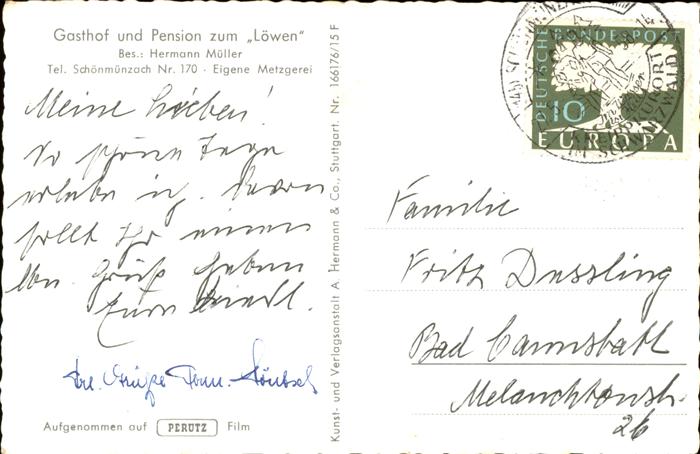 Gasthof und Pension zum „Löwen"
Bes.: Hermann Müller
Tel. Schönmünzach Nr. 170 · Eigene Metzgerei
Meine Lieben!
So schöne Tage
erlebe ich. Davon
sollt Ihr einen
lb. Gruß haben
Eure
Aufgenommen auf PERUTZ Film
Kunst- und Verlagsanstalt A. Hermann & Co., Stuttgart. Nr. 166176/15 F
DEUTSCHE BUNDESPOST
10
EUROPA
KURORT
IM SCHWARZWALD
Familie
Fritz Dessling
Bad Cannstatt
Melanchtonstr.
26